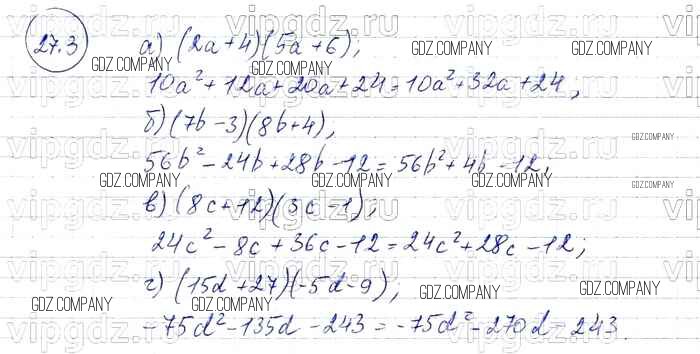 27.3
а) (2a+4)(5a+6),
10a²+12a+20a+24=10a²+32a+24,
б) (7b-3)(8b+4),
56b²-24b+28b-12=56b²+4b-12,
в) (8c+12)(3c-1);
24c²-8c+36c-12=24c²+28c-12;
г) (15d+27)(-5d-9),
-75d²-135d-243=-75d²-270d-243.
vipgdz.ru
GDZ.COMPANY